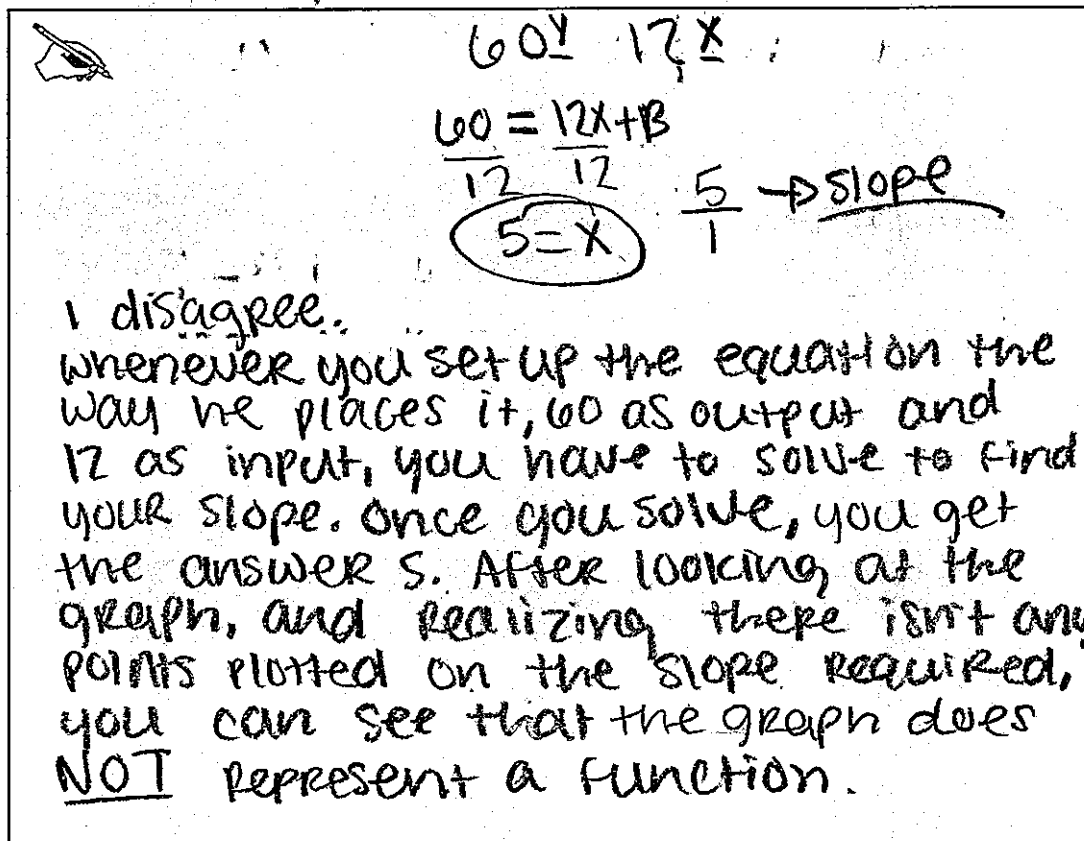 60y 12x
60 = 12x+B
12 12
5 = x 5/1 → slope
I disagree.
whenever you set up the equation the
way he places it, 60 as output and
12 as input, you have to solve to find
your slope. Once you solve, you get
the answer 5. After looking at the
graph, and realizing there isn't any
points plotted on the slope required,
you can see that the graph does
NOT represent a function.